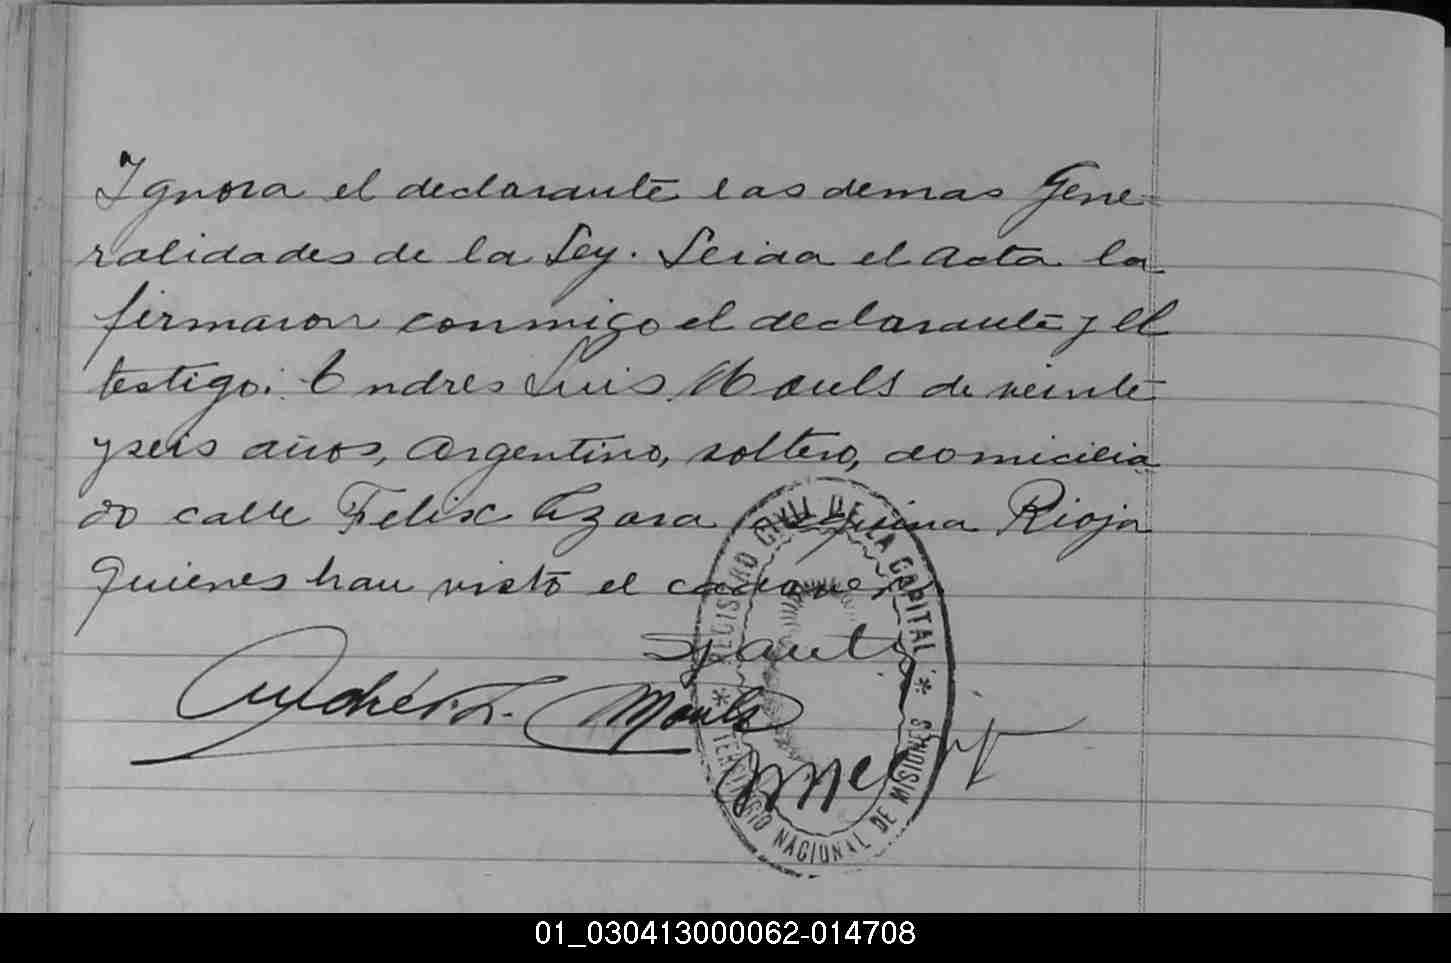 Ignora el declarante las demas Gene-
ralidades de la Ley. Leida el acta la
firmaron conmigo el declarante y el
testigo: Andres Luis Mouls de veinte
y seis años, argentino, soltero, domicilia
do calle Felix Azara esquina Rioja
quienes han visto el cadaver.
Andrés L. Mouls
REGISTRO CIVIL DE LA CAPITAL
* TERRITORIO NACIONAL DE MISIONES *
01_030413000062-014708